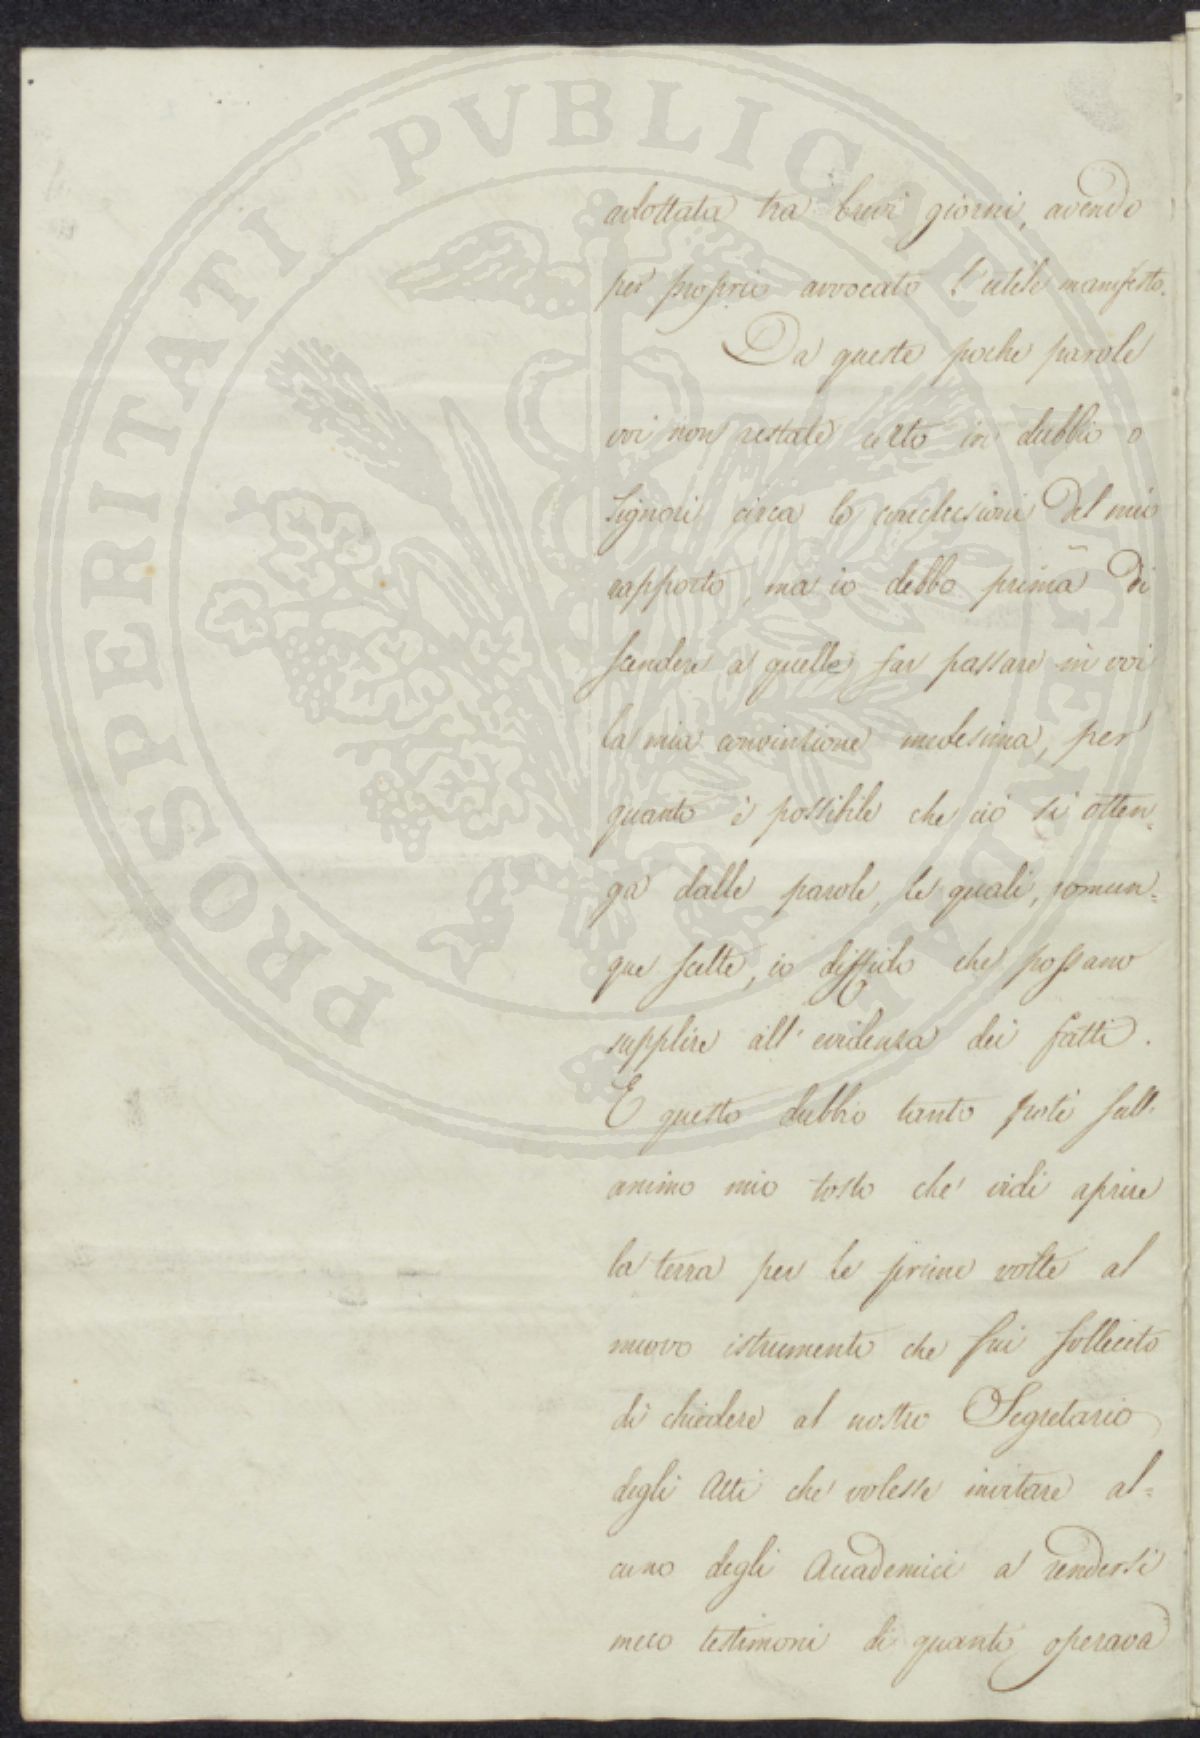 adottata tra brevi giorni, avendo
per proprio avvocato l'utile manifesto.
Da queste poche parole
voi non restate certo in dubbio o
Signori circa le conclusioni del mio
rapporto, ma io debbo prima di
scendere a quelle far passare in voi
la mia convinzione medesima, per
quanto è possibile che ciò si otten=
ga dalle parole, le quali, comun=
que scelte, io diffido che possano
supplire all'evidenza dei fatti.
E questo dubbio tanto potè sull'
animo mio tosto che vidi aprire
la terra per le prime volte al
nuovo istrumento che fui sollecito
di chiedere al nostro Segretario
degli Atti che volesse invitare al=
cuno degli Accademici a rendersi
meco testimoni di quanto operava
PROSPERITATI PVBLICAE AVGENDAE